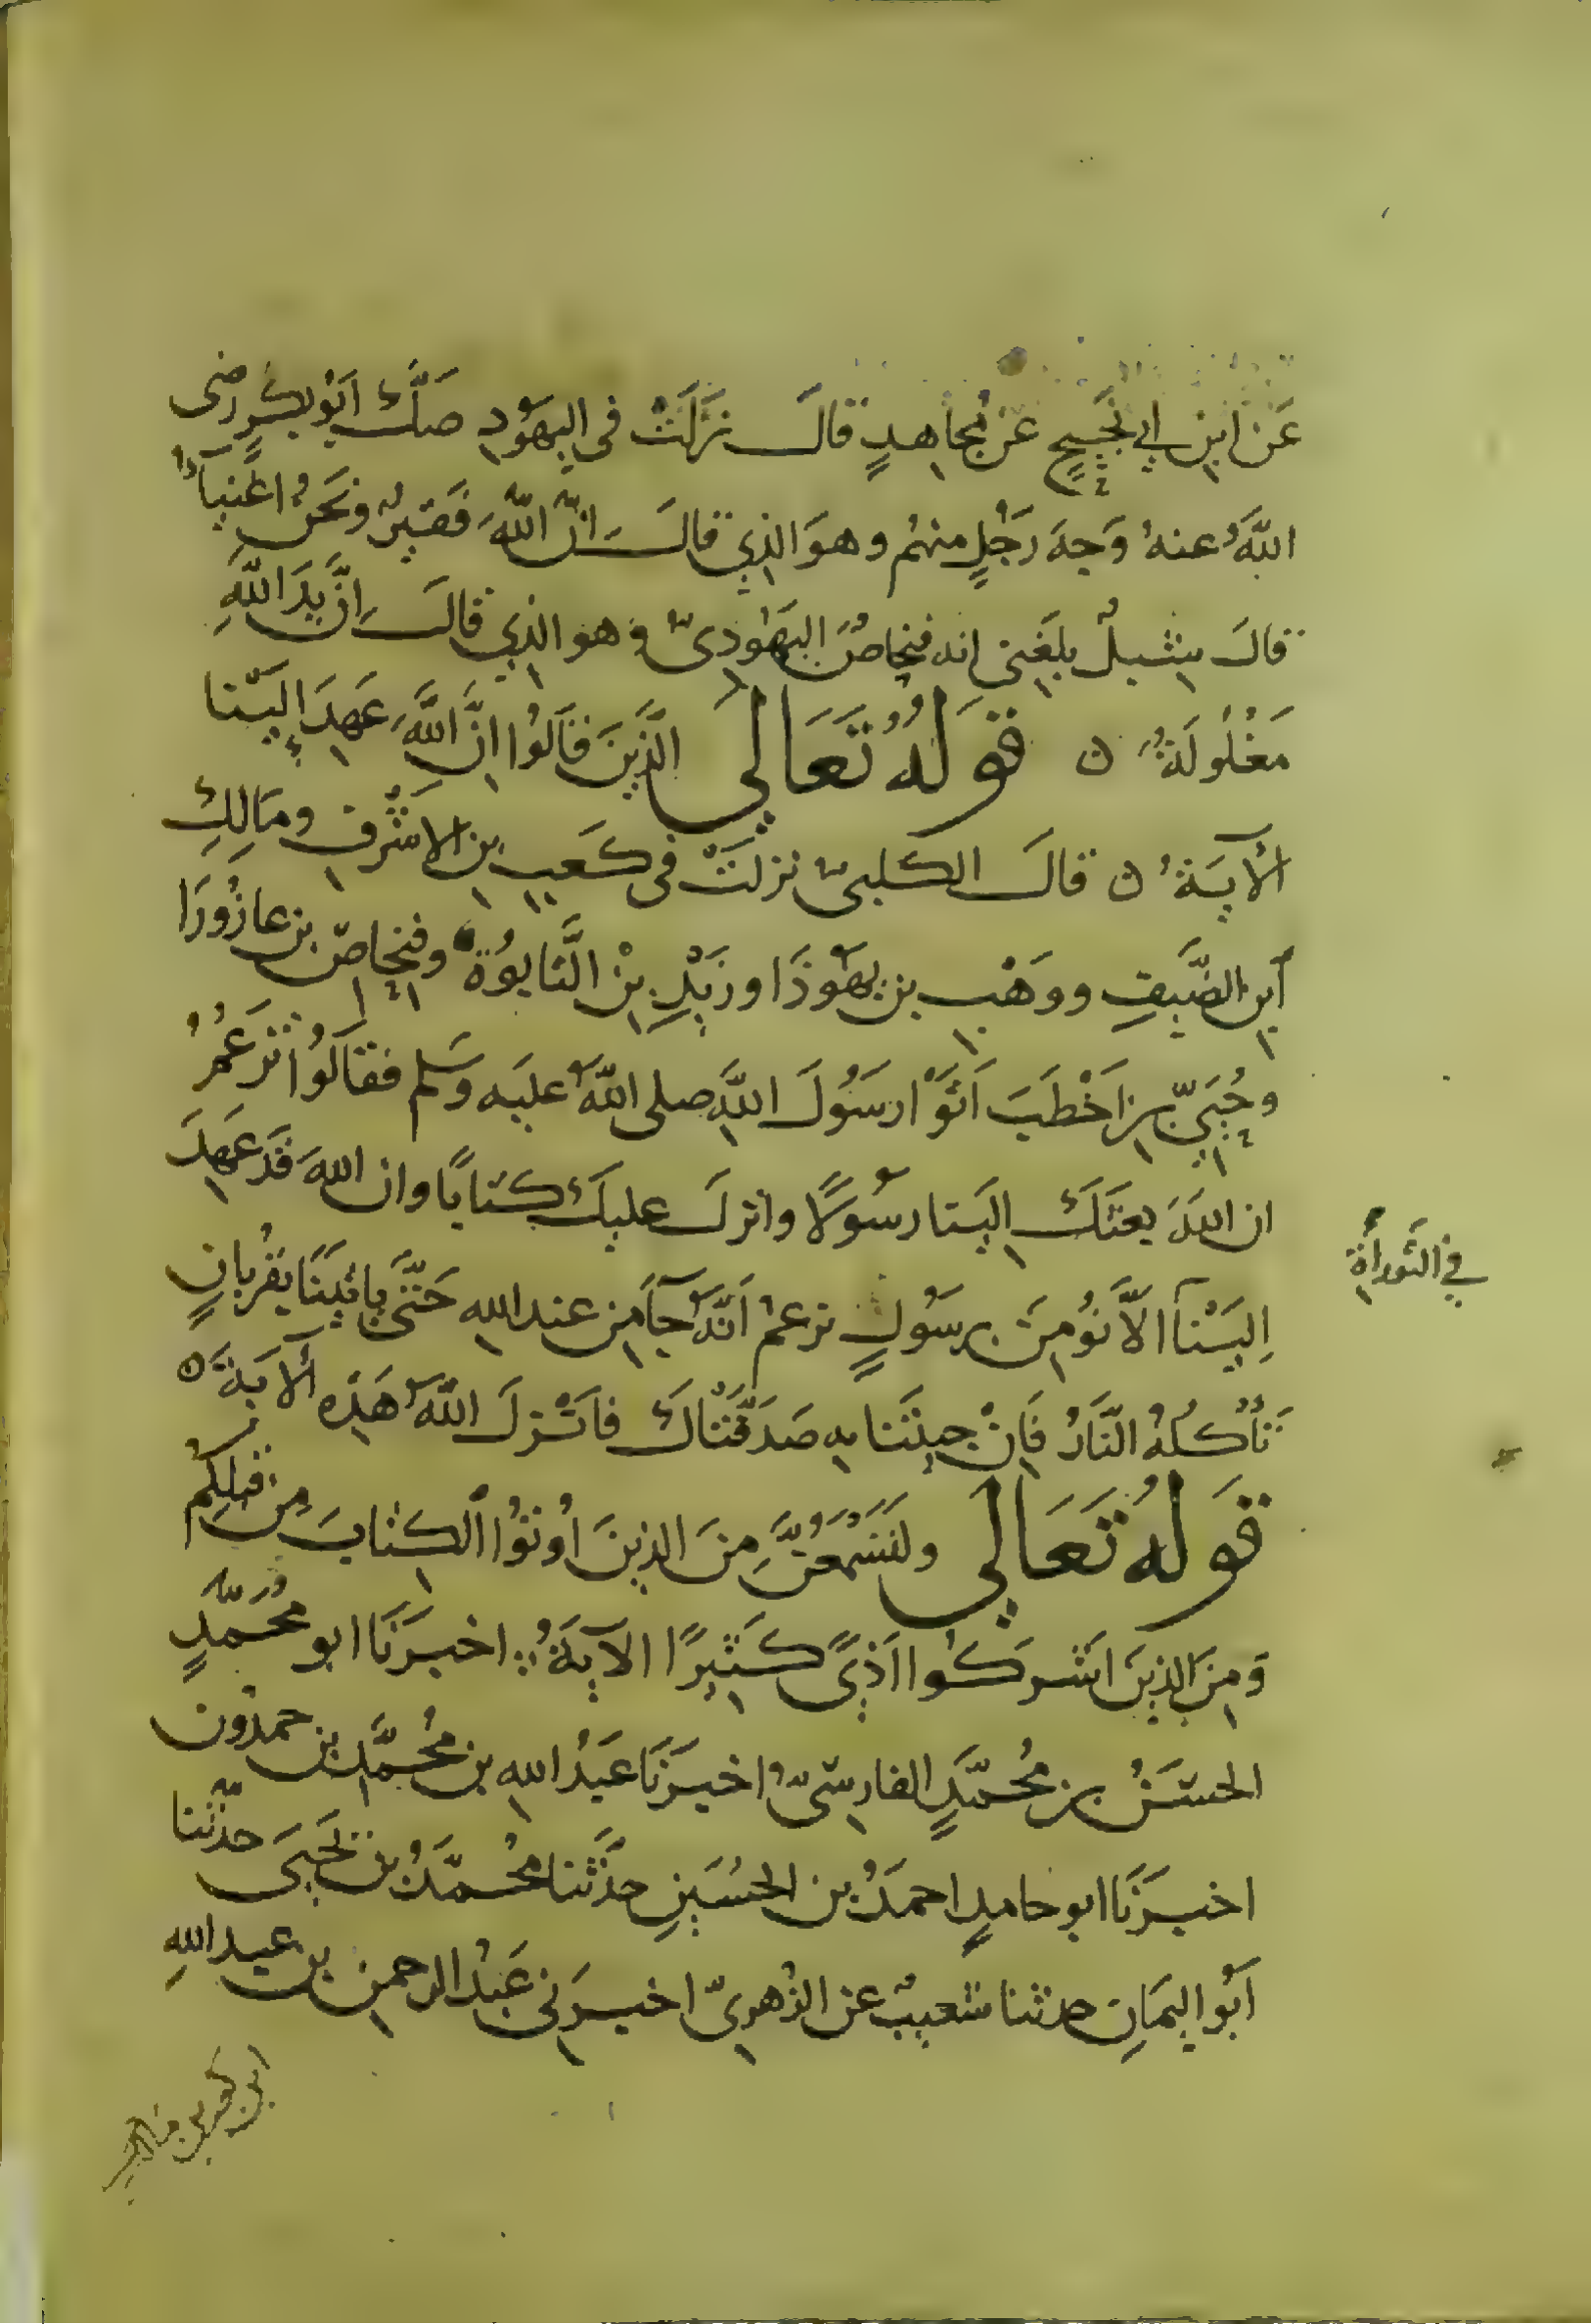 عَنْ ابْنِ ابي نَجِيحٍ عَنْ مُجاهِدٍ قالَ نَزَلَتْ في اليَهُودِ صَكَّ اَبُو بكرٍ رضى
اللَّهُ عنهُ وَجهَ رَجُلٍ منهُم وهوَ الذي قالَ اِنَّ اللَّهَ فَقيرٌ ونَحنُ اغنِيآءُ
قالَ شِبلٌ بلَغَني انه فِنحاصُ اليَهُودىُّ وهو الذي قالَ اِنَّ يَدَ اللَّهِ
مَغْلُولَةٌ ٥ قَولهُ تَعَالي الَّذِينَ قَالُوا اِنَّ اللَّهَ عَهِدَ اِلَيْنا
الآيَةُ ٥ قالَ الكلبىُّ نزلَتْ في كَعبِ بنِ الاشْرفِ ومَالِكِ
اَبنِ الضَّيفِ ووَهْبِ بن يهُوذَا وزَيْدِ بِنْ التَّابوُة وفِنحاصَ بن عازُورَا
وحُيَيِّ بنِ اَخْطَبَ اَتَوْا رسُولَ اللَّهِ صلى اللَّهُ عليه وسَلم فقالُوا تَزعُمُ
ان اللهَ بعثَكَ اِلَينا رسُولًا وانزلَ عليكَ كتابًا وان اللهَ قَد عَهِدَ
اِلَيْنَآ الَّا نُومِنَ برسُولٍ نزعمُ اَنَّهُ جآ مِن عند اللهِ حَتَّى يأتِيَنَا بقُربانٍ
في التَّوراةِ
تَأكُلُهُ النَّارُ فَاِنْ جِئتَنا بِهِ صَدَقْنَاكَ فاَنْزلَ اللَّهُ هَذِه الآيَةَ ٥
قَولهُ تَعَالي ولَتَسْمَعُنَّ مِنَ الذِينَ اُوتُوا الكتَابَ مِن قَبلِكُم
وَمِنَ الذِينَ اَشركُوا اَذًى كَثِيرًا الآيَةُ اخبرَنَا ابو مُحَمَّدٍ
الحسَنُ بن مُحمَّدٍ الفارسىُّ اخبرَنَا عَبدُ اللهِ بن مُحمَّدِ بن حمدُون
اخبرَنَا ابو حامدٍ احمدُ بن الحسُينِ حدَّثنا مُحمَّدُ بن يَحيَى حدَّثنا
اَبُو اليمَانِ حدثنا شعيبٌ عن الزُهرِىِّ اخبرَني عَبدُ الرحمنِ بن عبد اللهِ
ابن كعب بن مالك